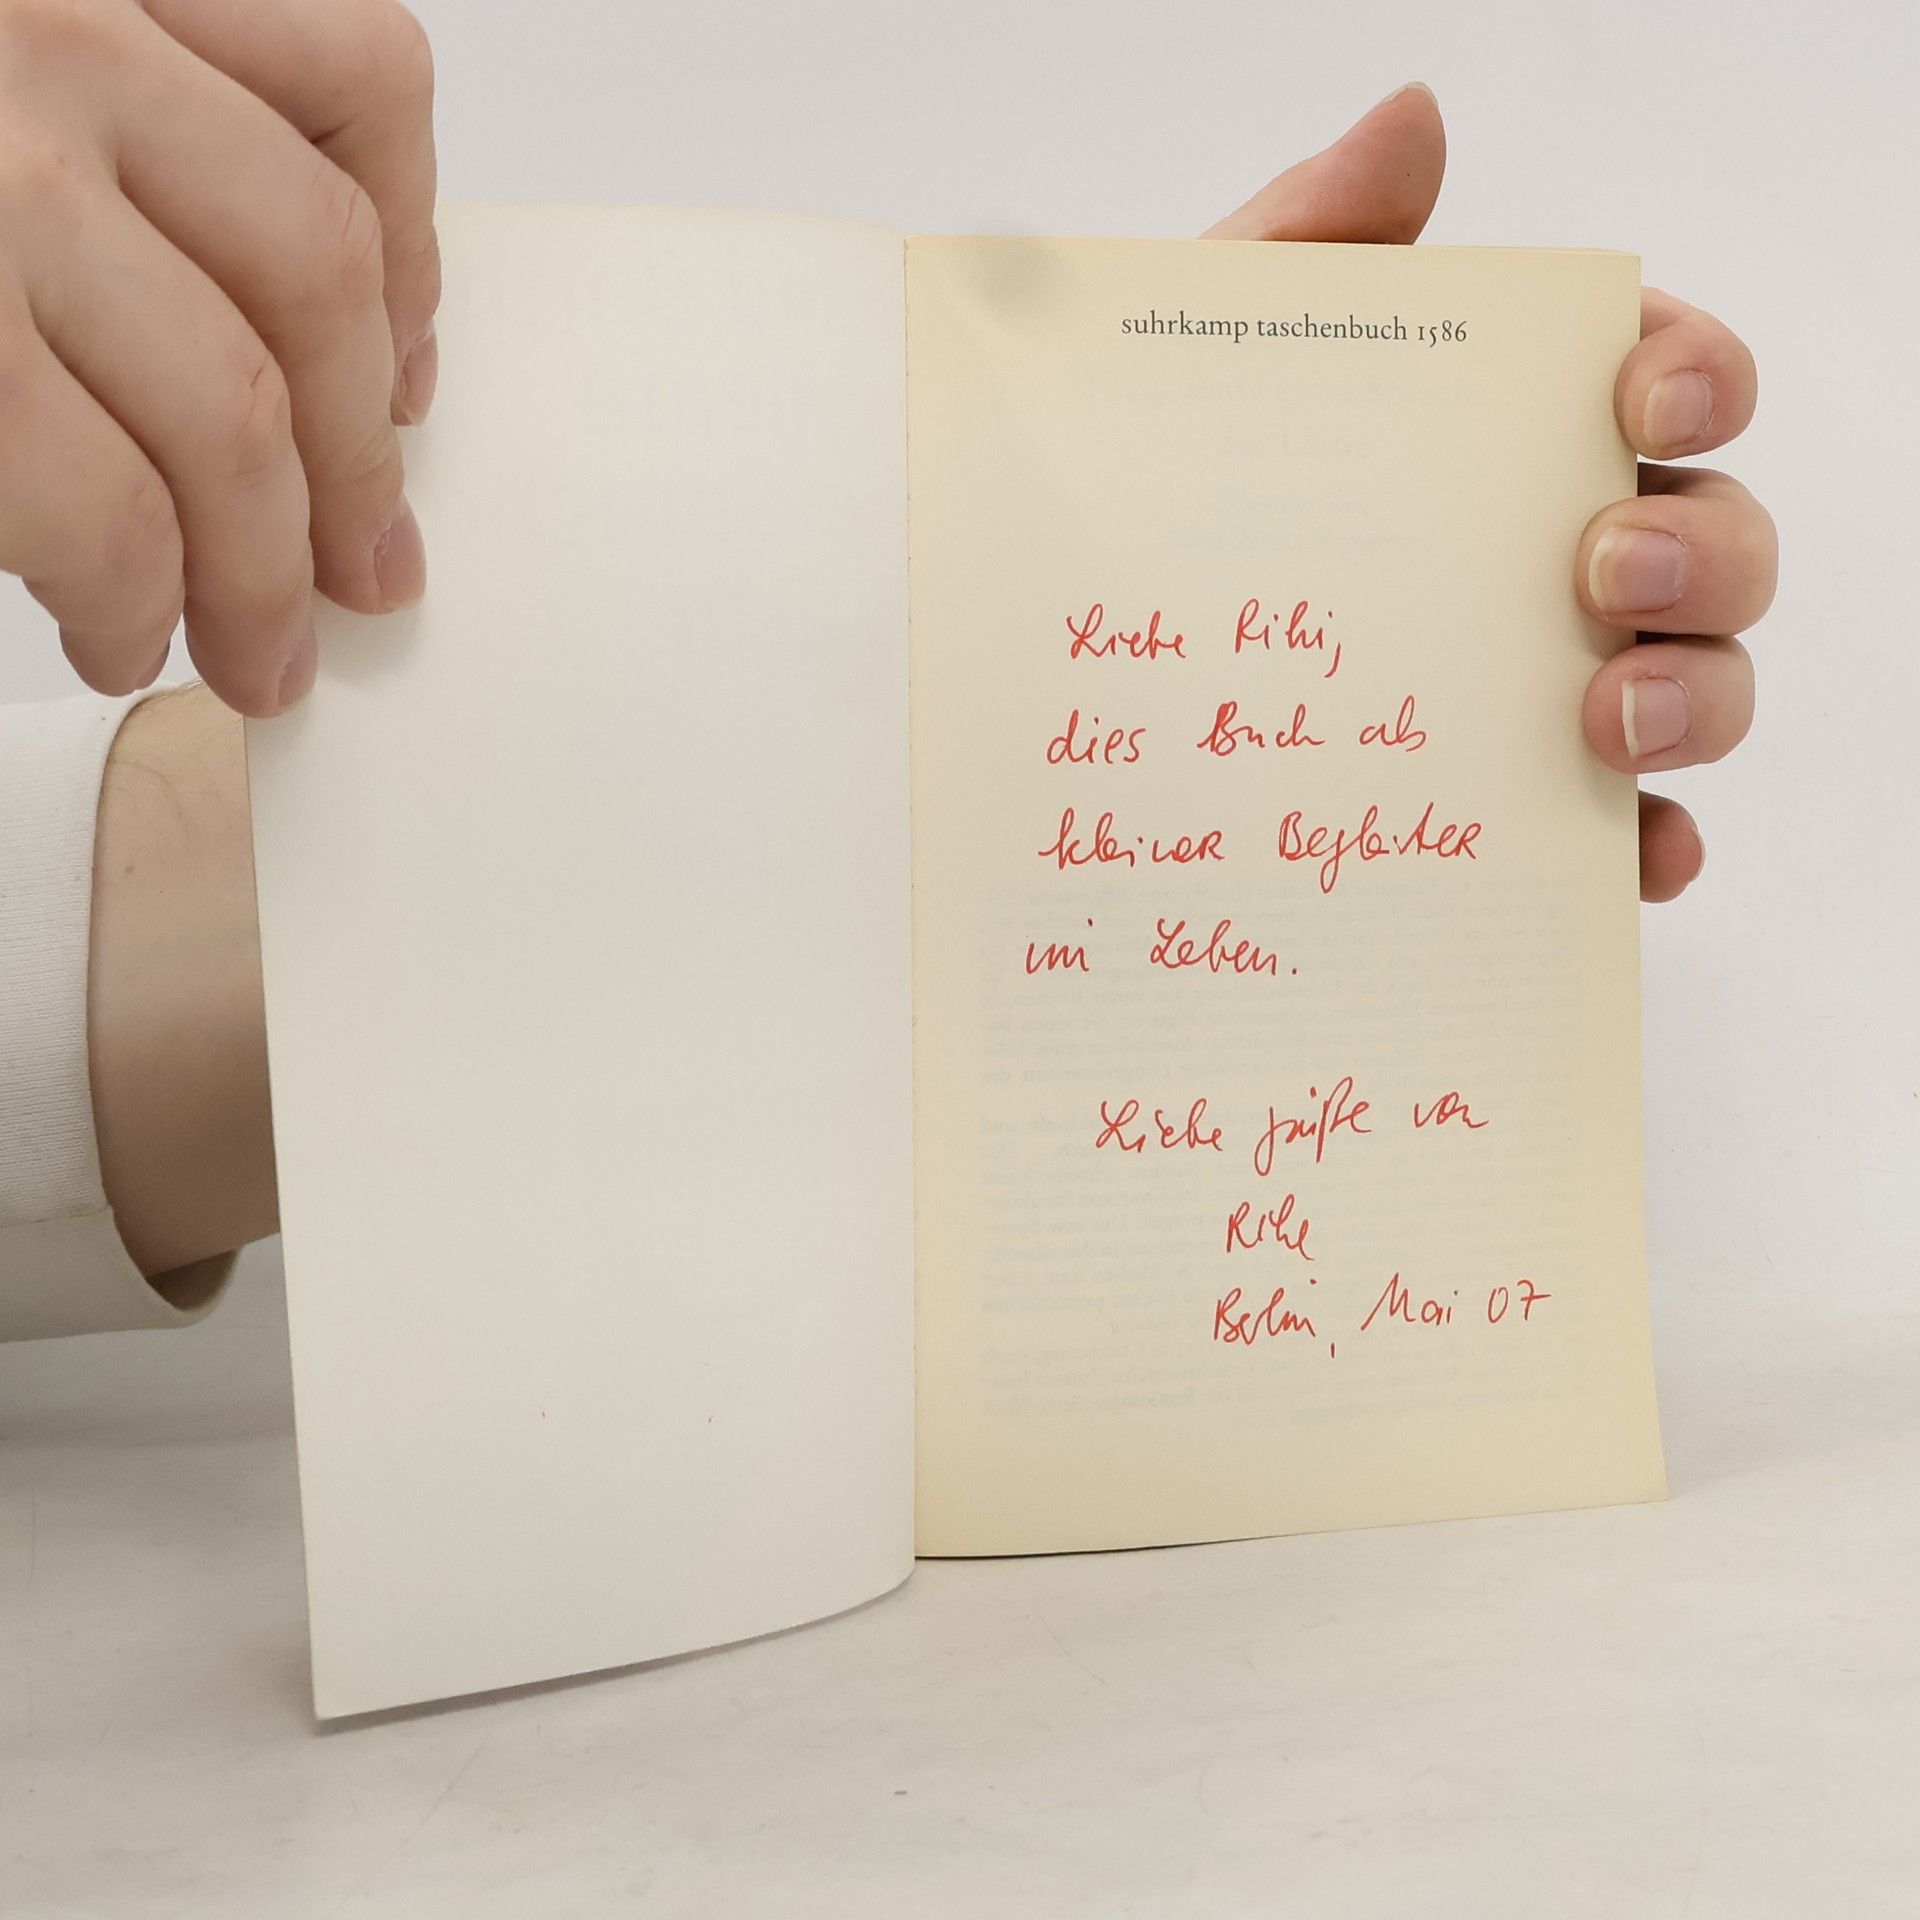 suhrkamp taschenbuch 1586
Liebe Riki,
dies Buch als
kleiner Begleiter
im Leben.
Liebe Grüße von
Rike
Berlin, Mai 07